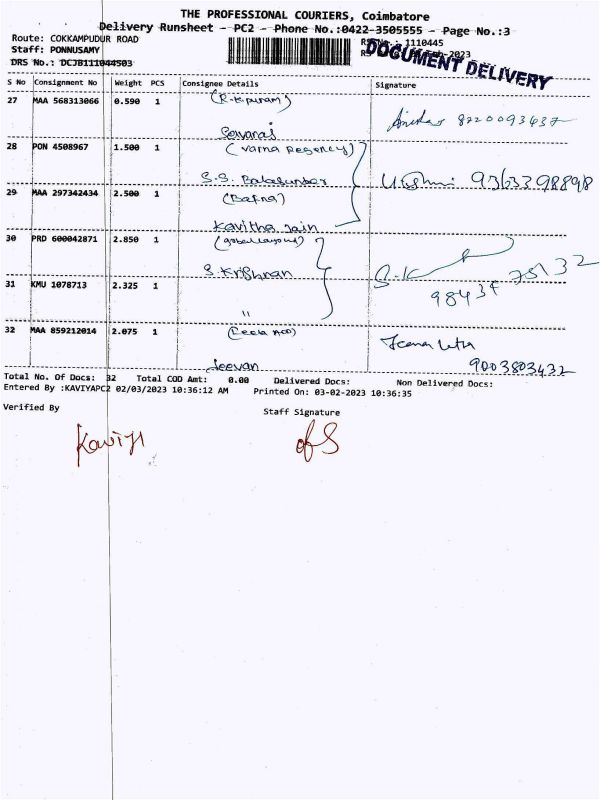 THE PROFESSIONAL COURIERS, Coimbatore
Delivery Runsheet - PC2 - Phone No.:0422-3505555 - Page No.:3
Route: COKKAMPUDUR ROAD
1110445
Staff: PONNUSAMY
-2023
DOCUMENT DELIVERY
DRS No.: DCJB111044503
S No Consignment No Weight PCS Consignee Details Signature
27 MAA 568313066 0.590 1
28 PON 4508967 1.500 1 (Varna Regency)
S.S. Balasundar 9363398898
29 MAA 297342434 2.500 1 (Bafna)
Kavitha Jain
30 PRD 600042871 2.850 1
S. Krishnan S.K 98434 75132
31 KMU 1078713 2.325 1
"
32 MAA 859212014 2.075 1
Jeevan 9003803432
Total No. Of Docs: 32 Total COD Amt: 0.00 Delivered Docs: Non Delivered Docs:
Entered By :KAVIYAPC2 02/03/2023 10:36:12 AM Printed On: 03-02-2023 10:36:35
Verified By Staff Signature